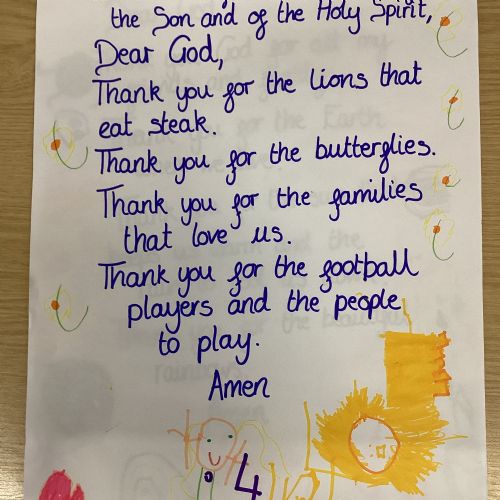 the Son and of the Holy Spirit,
Dear God,
Thank you for the lions that
eat steak.
Thank you for the butterflies.
Thank you for the families
that love us.
Thank you for the football
players and the people
to play.
Amen
4